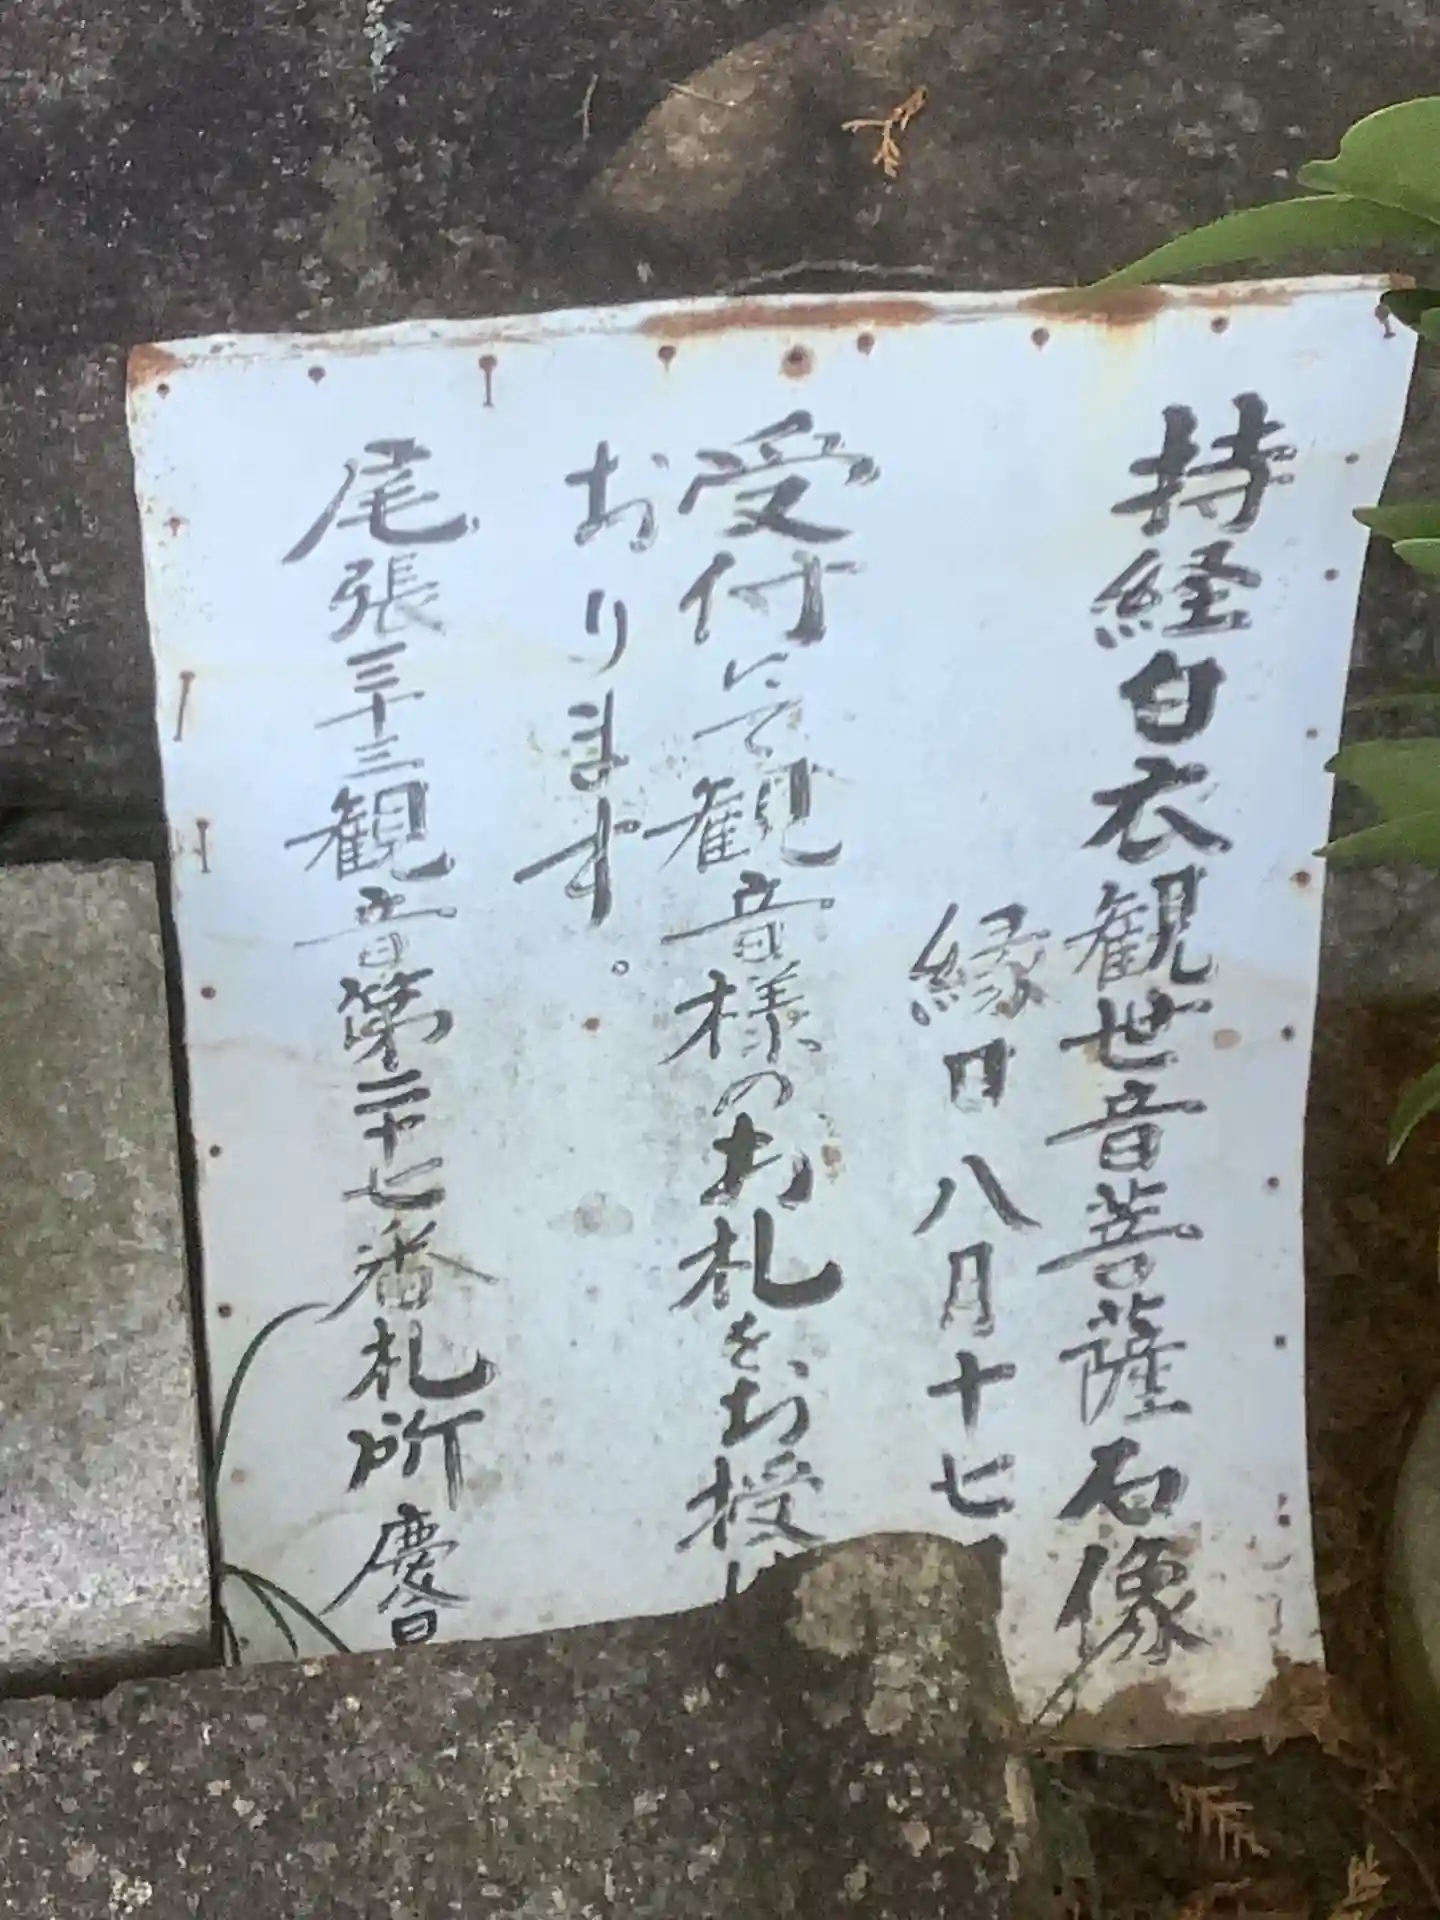 持経白衣観世音菩薩石像
縁日八月十七
受付にて観音様のお札をお授け
おります。
尾張三十三観音第二十七番札所 慶昌